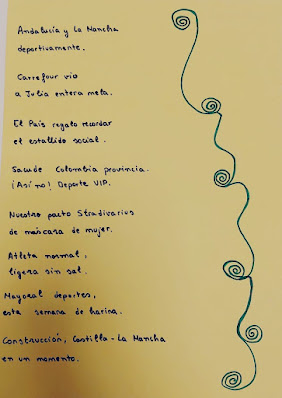 Andalucía y La Mancha
deportivamente.
Carrefour vio
a Julia entera meta.
El País regalo recordar
el estallido social.
Sacude Colombia provincia.
¡Así no! Deporte VIP.
Nuestro pacto Stradivarius
de máscara de mujer.
Atleta normal,
ligera sin sal.
Mayoral deportes,
esta semana de harina.
Construcción, Castilla - La Mancha
en un momento.